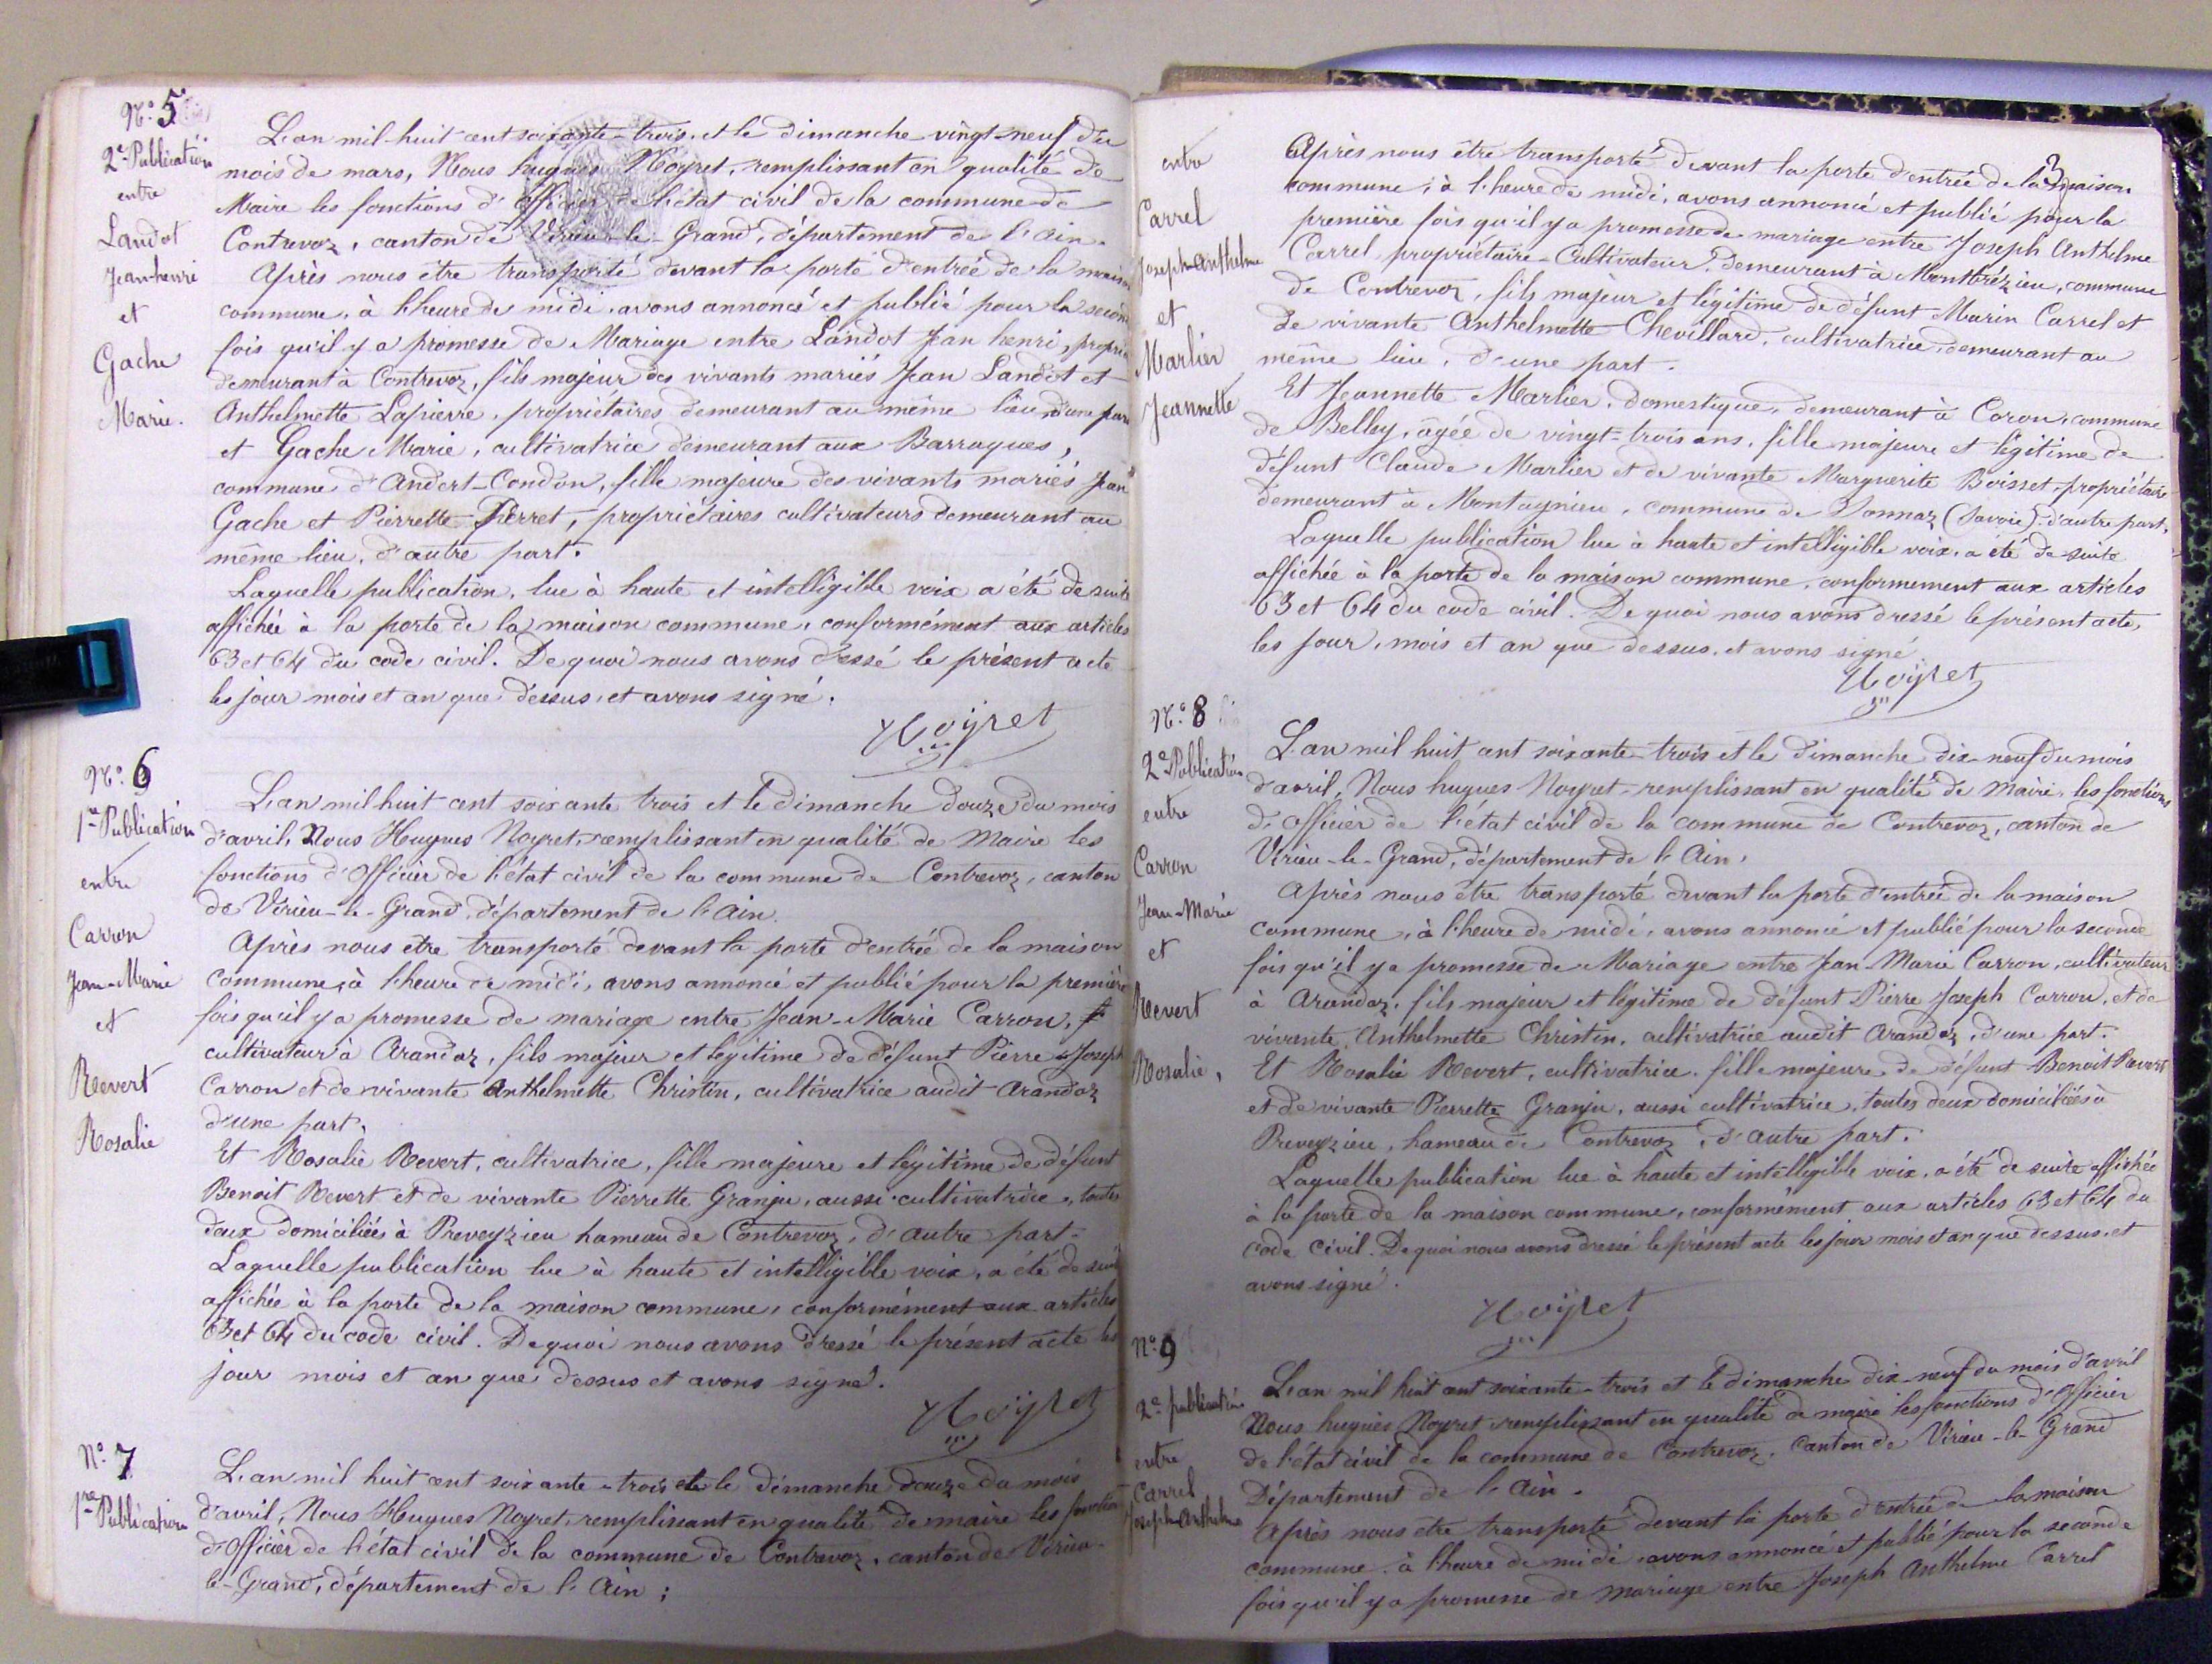 N.° 5
2e Publication
entre
Landot
Jean-henri
et
Gache
Marie.
L'an mil huit cent soixante-trois et le dimanche vingt-neuf du
mois de mars, Nous hugues Noyret, remplissant en qualité de
Maire les fonctions d'Officier de l'état civil de la commune de
Contrevoz, canton de Virieu-le-Grand, département de l'Ain.
Après nous être transporté devant la porte d'entrée de la maison
commune, à l'heure de midi, avons annoncé et publié pour la second
fois qu'il y a promesse de Mariage entre Landot Jean henri, propri
demeurant à Contrevoz, fils majeur des vivants mariés Jean Landot et
Anthelmette Lapierre, propriétaires demeurant au même lieu, d'une part
et Gache Marie, cultivatrice demeurant aux Barraques,
commune d'Andert-Condon, fille majeure des vivants mariés Jean
Gache et Pierrette Perret, propriétaires cultivateurs demeurant au
même lieu, d'autre part.
Laquelle publication, lue à haute et intelligible voix a été de suite
affichée à la porte de la maison commune, conformément aux articles
63 et 64 du code civil. De quoi nous avons dressé le présent acte
les jour mois et an que dessus, et avons signé.
Noyret
N.° 6
1re Publication
entre
Carron
Jean-Marie
et
Revert
Rosalie
L'an mil huit cent soixante trois et le dimanche douze du mois
d'avril, Nous Hugues Noyret, remplissant en qualité de Maire les
fonctions d'Officier de l'état civil de la commune de Contrevoz, canton
de Virieu-le-Grand, département de l'Ain.
Après nous être transporté devant la porte d'entrée de la maison
commune, à l'heure de midi, avons annoncé et publié pour la première
fois qu'il y a promesse de mariage entre Jean-Marie Carron,
cultivateur à Arandaz, fils majeur et légitime de défunt Pierre Joseph
Carron et de vivante Anthelmette Christin, cultivatrice audit Arandaz
d'une part.
Et Rosalie Revert, cultivatrice, fille majeure et légitime de défunt
Benoit Revert et de vivante Pierrette Granju, aussi cultivatrice, toutes
deux domiciliées à Preveyzieu hameau de Contrevoz, d'autre part.
Laquelle publication lue à haute et intelligible voix, a été de suite
affichée à la porte de la maison commune, conformément aux articles
63 et 64 du code civil. De quoi nous avons dressé le présent acte les
jour mois et an que dessus et avons signé.
Noyret
N.° 7
1re Publication
L'an mil huit cent soixante-trois et le dimanche douze du mois
d'avril, Nous Hugues Noyret, remplissant en qualité de maire les fonctions
d'Officier de l'état civil de la commune de Contrevoz, canton de Virieu-
le-Grand, département de l'Ain ;
3
entre
Carrel
Joseph-Anthelme
et
Marlier
Jeannette
Après nous être transporté devant la porte d'entrée de la maison
commune, à l'heure de midi, avons annoncé et publié pour la
première fois qu'il y a promesse de mariage entre Joseph Anthelme
Carrel, propriétaire-Cultivateur, demeurant à Montbrézieu, commune
de Contrevoz, fils majeur et légitime de défunt Marin Carrel et
de vivante Anthelmette Chevillard, cultivatrice, demeurant au
même lieu, d'une part.
Et Jeannette Marlier, domestique, demeurant à Coron, commune
de Belley, âgée de vingt-trois ans, fille majeure et légitime de
défunt Claude Marlier et de vivante Marguerite Boisset, propriétaire
demeurant à Montagnieu, commune de Sonnaz (Savoie) d'autre part.
Laquelle publication lue à haute et intelligible voix, a été de suite
affichée à la porte de la maison commune, conformement aux articles
63 et 64 du code civil. De quoi nous avons dressé le présent acte,
les jour, mois et an que dessus, et avons signé
Noyret
N.° 8
2e Publication
entre
Carron
Jean-Marie
et
Revert
Rosalie,
L'an mil huit cent soixante-trois et le dimanche dix-neuf du mois
d'avril, Nous hugues Noyret, remplissant en qualité de maire, les fonctions
d'officier de l'état civil de la commune de Contrevoz, canton de
Virieu-le-Grand, département de l'Ain,
Après nous être transporté devant la porte d'entrée de la maison
commune, à l'heure de midi, avons annoncé et publié pour la seconde
fois qu'il y a promesse de Mariage entre Jean-Marie Carron, cultivateur
à Arandaz, fils majeur et légitime de défunt Pierre Joseph Carron, et de
vivante Anthelmette Christin, cultivatrice audit Arandaz, d'une part.
Et Rosalie Revert, cultivatrice, fille majeure de défunt Benoit Revert
et de vivante Pierrette Granju, aussi cultivatrice, toutes deux domiciliées à
Preveyzieu, hameau de Contrevoz, d'autre part.
Laquelle publication lue à haute et intelligible voix, a été de suite affichée
à la porte de la maison commune, conformément aux articles 63 et 64 du
code civil. De quoi nous avons dressé le présent acte les jour mois et an que dessus, et
avons signé.
Noyret
N.° 9
2e publication
entre
Carrel
Joseph-Anthelme
L'an mil huit cent soixante-trois et le dimanche dix-neuf du mois d'avril
Nous hugues Noyret remplissant en qualité de maire les fonctions d'Officier
de l'état civil de la commune de Contrevoz, canton de Virieu-le-Grand
Département de l'Ain.
Après nous être transporté devant la porte d'entrée de la maison
commune à l'heure de midi, avons annoncé et publié pour la seconde
fois qu'il y a promesse de mariage entre Joseph Anthelme Carrel